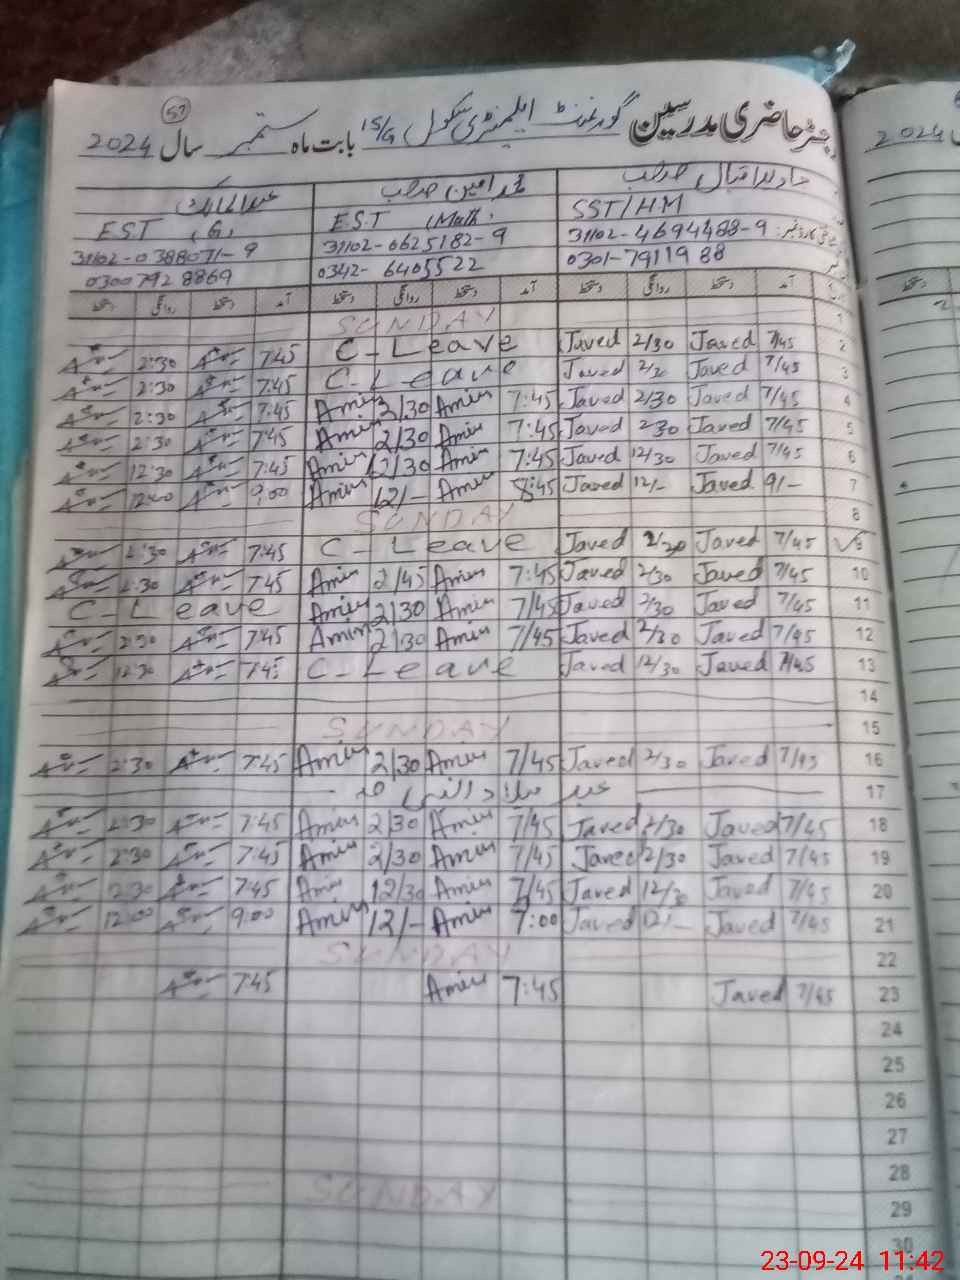 57
رجسٹر حاضری مدرسین گورنمنٹ ایلیمنٹری سکول 15/G بابت ماہ ستمبر سال 2024
جاوید اقبال صاحب محمد امین صاحب عبدالمالک
SST/HM EST (Math. EST (G)
31102-4694488-9 31102-0625182-9 31102-0388071-9
0301-7911988 0342-6405522 0300 792 8869
دستخط روانگی دستخط آمد دستخط روانگی دستخط آمد دستخط روانگی دستخط آمد
SUNDAY 1
2:30 7:45 C-Leave Javed 2/30 Javed 7/45 2
2:30 7:45 C-Leave Javed Javed 7/45 3
2:30 7:45 Amin 2/30 Amin 7:45 Javed 2/30 Javed 7/45 4
2:30 7:45 Amin 2/30 Amin 7:45 Javed 2/30 Javed 7/45 5
12:30 7:45 Amin 12/30 Amin 7:45 Javed 12/30 Javed 7/45 6
12:00 9:00 Amin 12/- Amin 8:45 Javed 12/- Javed 9/- 7
SUNDAY 8
2:30 7:45 C-Leave Javed 2/30 Javed 7/45
2:30 7:45 Amin 2/45 Amin 7:45 Javed 2/30 Javed 7/45 10
C-Leave Amin 2/30 Amin 7/45 Javed 2/30 Javed 7/45 11
2:30 7:45 Amin 2/30 Amin 7/45 Javed 2/30 Javed 7/45 12
12:30 7:45 C-Leave Javed 12/30 Javed 7/45 13
14
SUNDAY 15
2:30 7:45 Amin 2/30 Amin 7/45 Javed 2/30 Javed 7/45 16
عید میلاد النبی 17
2:30 7:45 Amin 2/30 Amin 7/45 Javed 2/30 Javed 7/45 18
2:30 7:45 Amin 2/30 Amin 7/45 Javed 2/30 Javed 7/45 19
12:30 7:45 Amin 12/30 Amin 7/45 Javed 12/30 Javed 7/45 20
12:00 9:00 Amin 12/- Amin 7:00 Javed 12/- Javed 7/45 21
SUNDAY 22
7:45 Amin 7:45 Javed 7/45 23
24
25
26
27
28
SUNDAY 29
30
2024
23-09-24 11:42